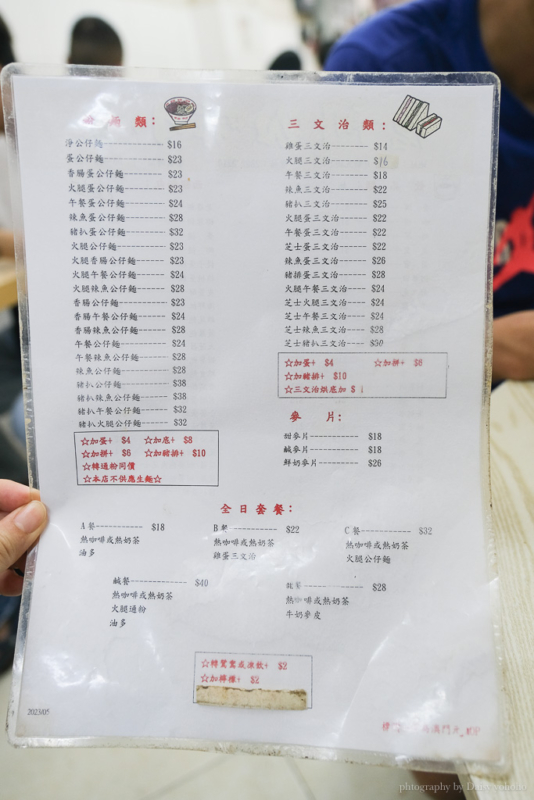 類：
淨公仔麵 $16
蛋公仔麵 $23
香腸蛋公仔麵 $23
火腿蛋公仔麵 $23
午餐蛋公仔麵 $24
辣魚蛋公仔麵 $28
豬扒蛋公仔麵 $32
火腿公仔麵 $23
火腿香腸公仔麵 $23
火腿午餐公仔麵 $24
火腿辣魚公仔麵 $28
香腸公仔麵 $23
香腸午餐公仔麵 $24
香腸辣魚公仔麵 $28
午餐公仔麵 $24
午餐辣魚公仔麵 $28
辣魚公仔麵 $28
豬扒公仔麵 $38
豬扒辣魚公仔麵 $38
豬扒午餐公仔麵 $32
豬扒火腿公仔麵 $32
☆加蛋+ $4 ☆加底+ $8
☆加餅+ $6 ☆加豬排+ $10
☆轉通粉同價
☆本店不供應生麵☆
三文治類：
雞蛋三文治 $14
火腿三文治 $16
午餐三文治 $18
辣魚三文治 $22
豬扒三文治 $25
火腿蛋三文治 $22
午餐蛋三文治 $22
芝士蛋三文治 $22
辣魚蛋三文治 $26
豬排蛋三文治 $28
火腿午三文治 $24
芝士火腿三文治 $24
芝士午餐三文治 $24
芝士辣魚三文治 $28
芝士豬扒三文治 $30
☆加蛋+ $4 ☆加餅+ $6
☆加豬排+ $10
☆三文治烘底加 $1
麥片：
甜麥片 $18
鹹麥片 $18
鮮奶麥片 $26
全日套餐：
A餐 $18
熱咖啡或熱奶茶
油多
B餐 $22
熱咖啡或熱奶茶
雞蛋三文治
C餐 $32
熱咖啡或熱奶茶
火腿公仔麵
鹹餐 $40
熱咖啡或熱奶茶
火腿通粉
油多
$28
熱咖啡或熱奶茶
牛奶麥皮
☆轉鴛鴦或凍飲+ $2
☆加檸檬+ $2
2023/05
澳門元,MOP
photography by